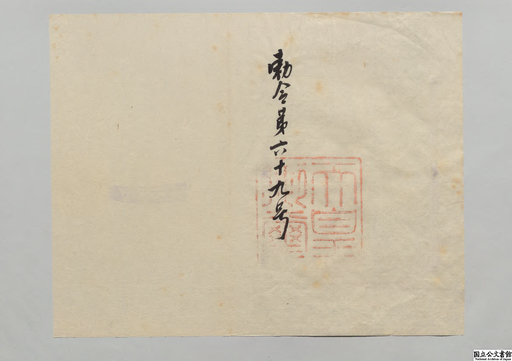 勅令第六十九号
天皇御璽
国立公文書館
National Archives of Japan